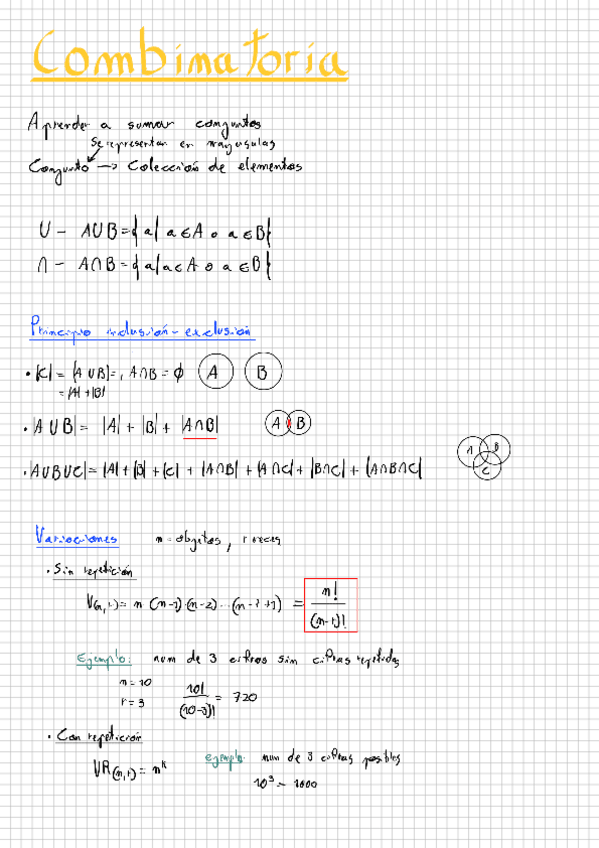 Combinatoria
Aprender a sumar conjuntos
Se representan en mayusculas
Conjunto → Colección de elementos
U - A∪B = {a| a∈A o a∈B}
∩ - A∩B = {a| a∈A o a∈B}
Principio inclusión-exclusión
• |C| = |A ∪ B| = , A∩B = ∅ A B
= |A| + |B|
• |A ∪ B| = |A| + |B| + |A∩B| A B
• |A∪B∪C| = |A| + |B| + |C| + |A∩B| + |A∩C| + |B∩C| + |A∩B∩C| A B C
Variaciones n = objetos, r veces
• Sin repetición
V(n,r) = n·(n-1)·(n-2)...(n-r+1) = n! / (n-r)!
Ejemplo: num de 3 cifras sin cifras repetidas
n = 10
r = 3 10! / (10-3)! = 720
• Con repeticion
VR(n,r) = nᴿ ejemplo: num de 3 cifras posibles
10³ = 1000